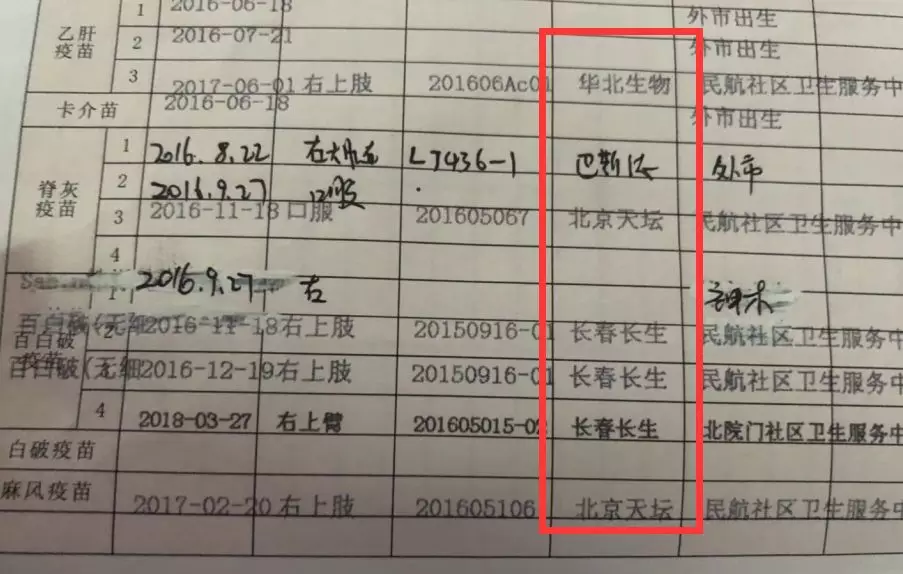 1 2016-06-18 外市出生
乙肝疫苗 2 2016-07-21 外市出生
3 2017-06-01 右上肢 201606Ac01 华北生物 民航社区卫生服务中
卡介苗 2016-06-18 外市出生
1 2016.8.22 L7436-1 巴斯德 外市
脊灰疫苗 2 2016.9.27 口服
3 2016-11-18 口服 201605067 北京天坛 民航社区卫生服务中
4
1 2016.9.27 右
百白破(无细 2 2016-11-18 右上肢 20150916-01 长春长生 民航社区卫生服务中
百白破疫苗
百白破(无细 2016-12-19 右上肢 20150916-01 长春长生 民航社区卫生服务中
4 2018-03-27 右上臂 201605015-02 长春长生 北院门社区卫生服务中
白破疫苗
麻风疫苗 2017-02-20 右上肢 201605106 北京天坛 民航社区卫生服务中